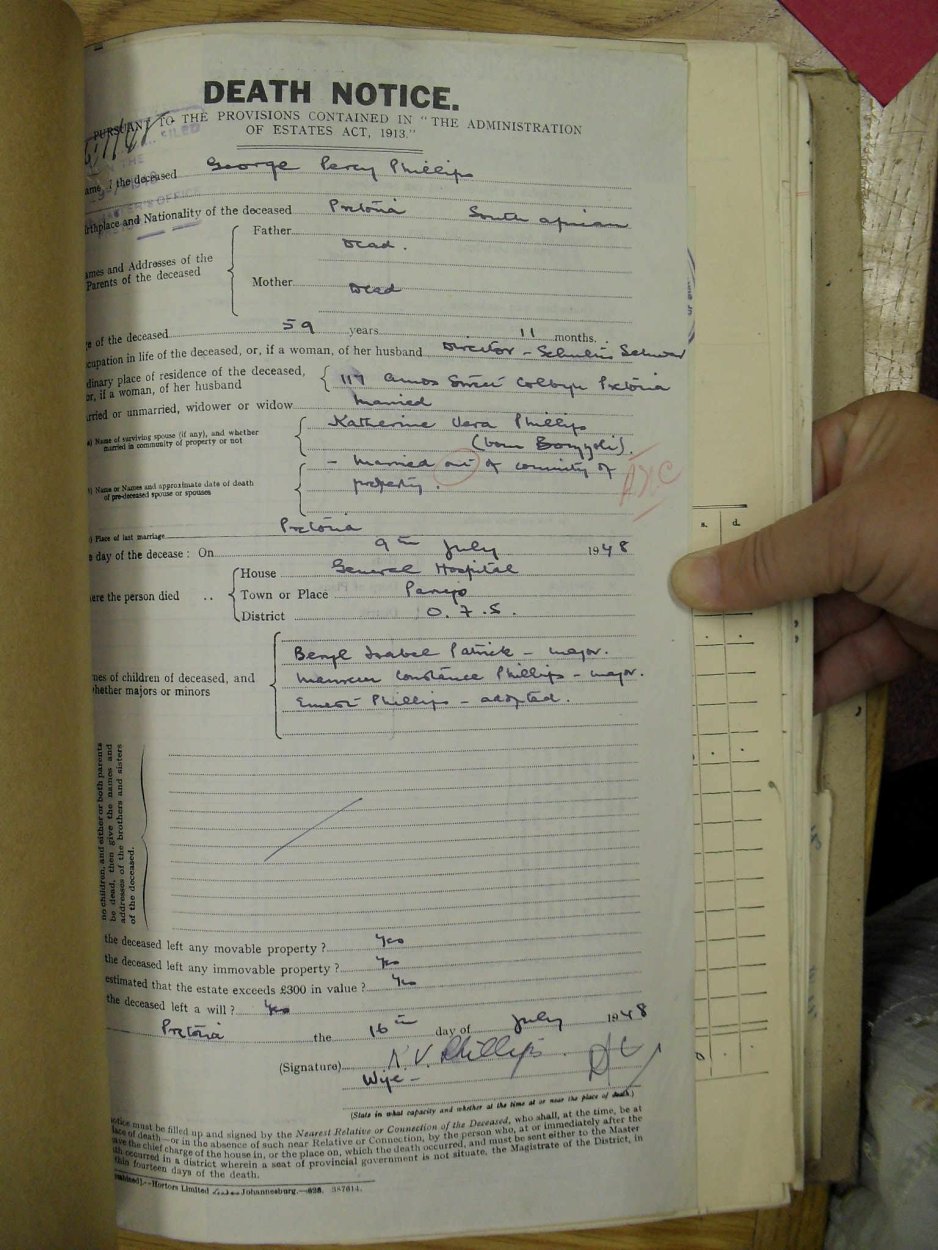 DEATH NOTICE.
PURSUANT TO THE PROVISIONS CONTAINED IN "THE ADMINISTRATION
OF ESTATES ACT, 1913."
ame of the deceased George Percy Phillips
irthplace and Nationality of the deceased Pretoria South african
Father
Dead.
ames and Addresses of the
Parents of the deceased
Mother
Dead
ge of the deceased 59 years 11 months.
ccupation in life of the deceased, or, if a woman, of her husband Director -
dinary place of residence of the deceased,
or, if a woman, of her husband
117 amos Street Colbyn Pretoria
rried or unmarried, widower or widow married
a) Name of surviving spouse (if any), and whether
married in community of property or not
Katherine Vera Phillips
(born
b) Name or Names and approximate date of death
of pre-deceased spouse or spouses
- married out of community of
property.
) Place of last marriage Pretoria
e day of the decease: On 9th July 1948
House General Hospital
ere the person died .. Town or Place Parijs
District O.F.S.
mes of children of deceased, and
whether majors or minors
Beryl Isabel Patrick - major.
Maureen Constance Phillips - major.
Ernest Phillips - adopted.
no children, and either or both parents
be dead, then give the names and
addresses of the brothers and sisters
of the deceased.
the deceased left any movable property? Yes
the deceased left any immovable property? Yes
estimated that the estate exceeds £300 in value? Yes
the deceased left a will? Yes
Pretoria the 16th day of July 1948
(Signature) K. V. Phillips
Wife -
(State in what capacity and whether at the time at or near the place of death.)
otice must be filled up and signed by the Nearest Relative or Connection of the Deceased, who shall, at the time, be at
lace of death—or in the absence of such near Relative or Connection, by the person who, at or immediately after the
ave the chief charge of the house in, or the place on, which the death occurred, and must be sent either to the Master
th occurred in a district wherein a seat of provincial government is not situate, the Magistrate of the District, in
thin fourteen days of the death.
Hortors Limited Johannesburg.—828. 387614.
s. d.